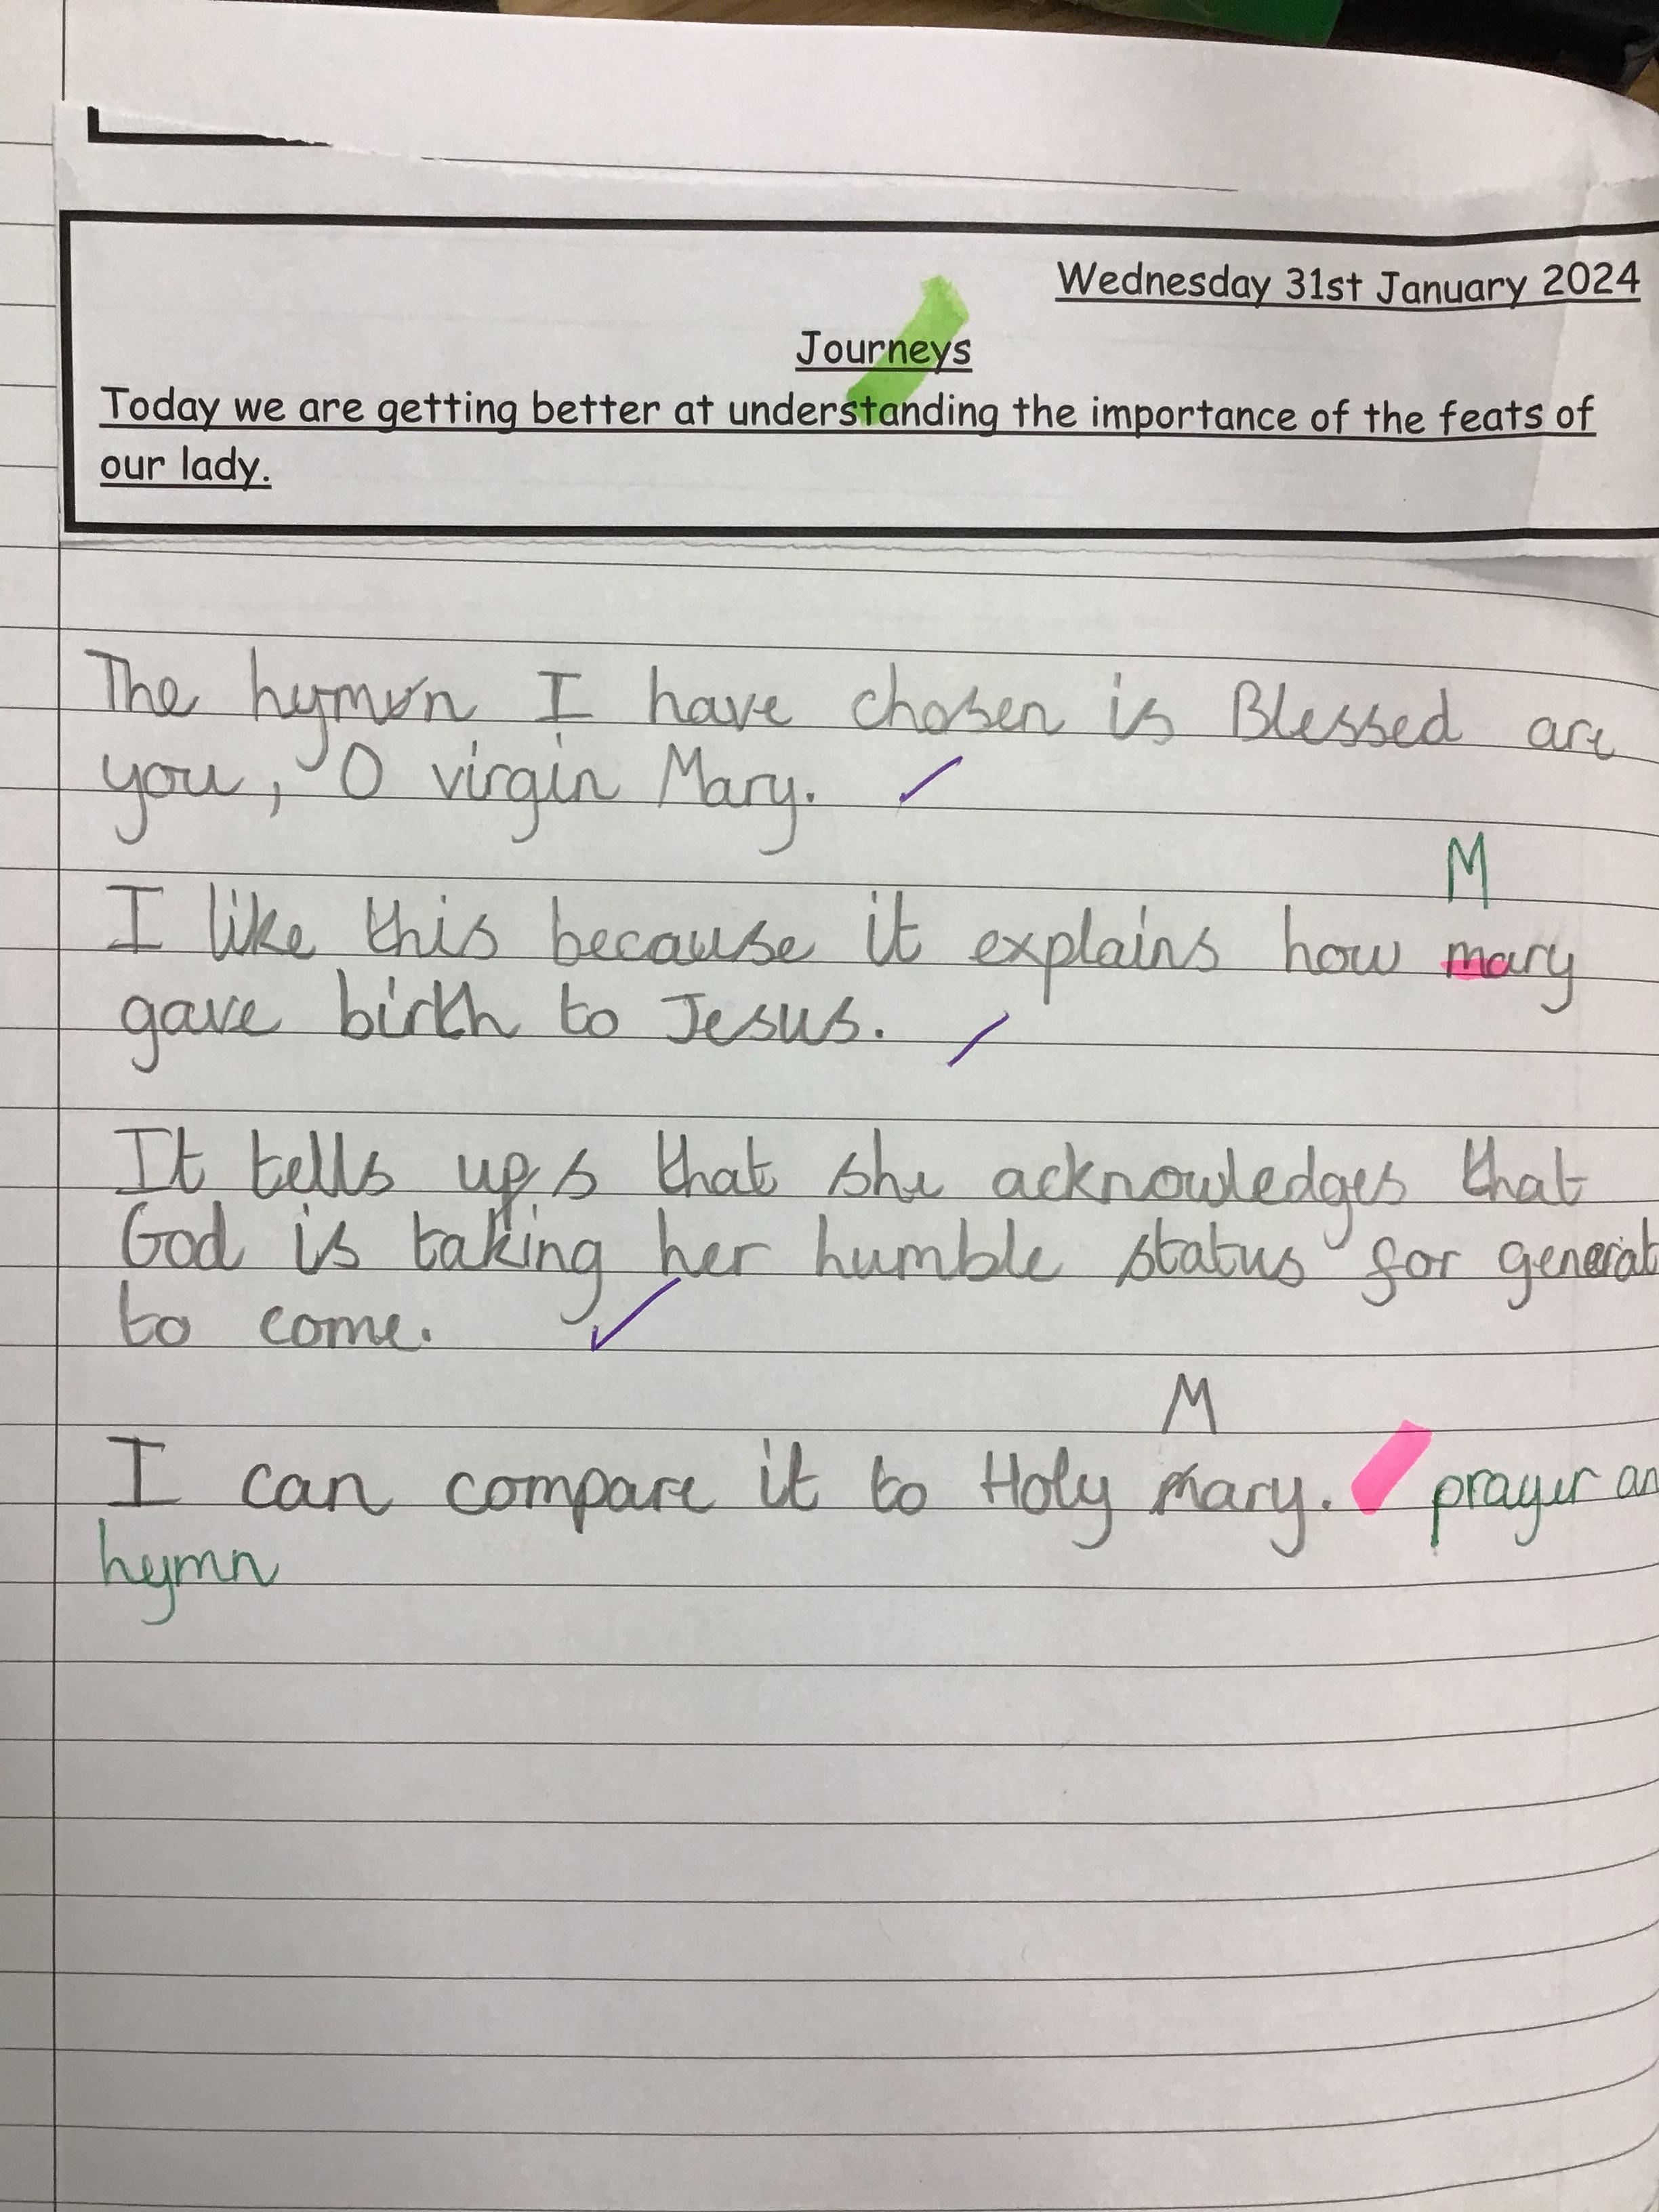 Wednesday 31st January 2024
Journeys
Today we are getting better at understanding the importance of the feats of
our lady.
The hymn I have chosen is Blessed are
you, O virgin Mary.
M
I like this because it explains how mary
gave birth to Jesus.
It tells us that she acknowledges that
God is taking her humble status for generat
to come.
M
I can compare it to Holy mary. prayer an
hymn